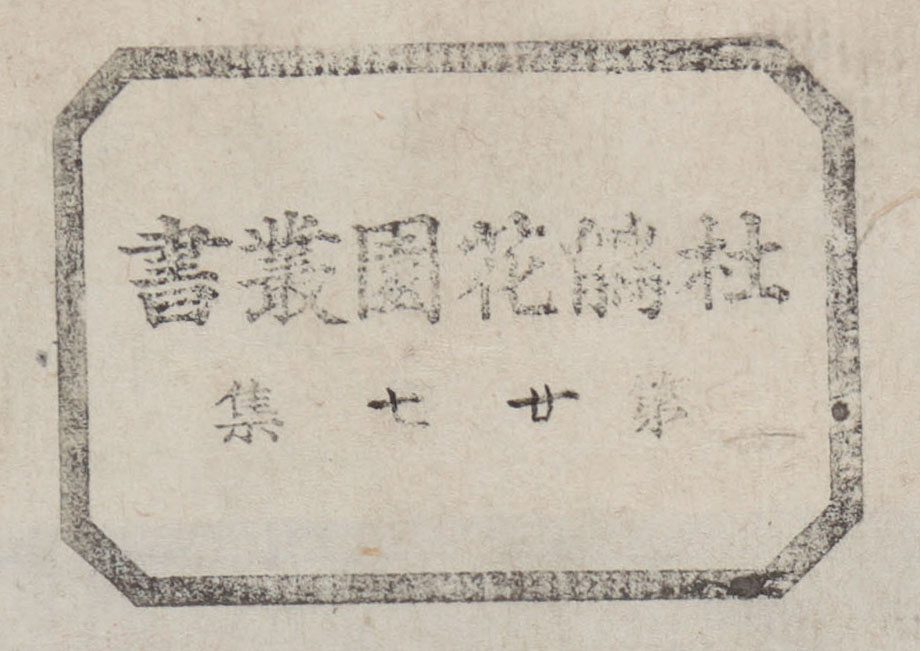 杜鵑花園叢書
第廿七集